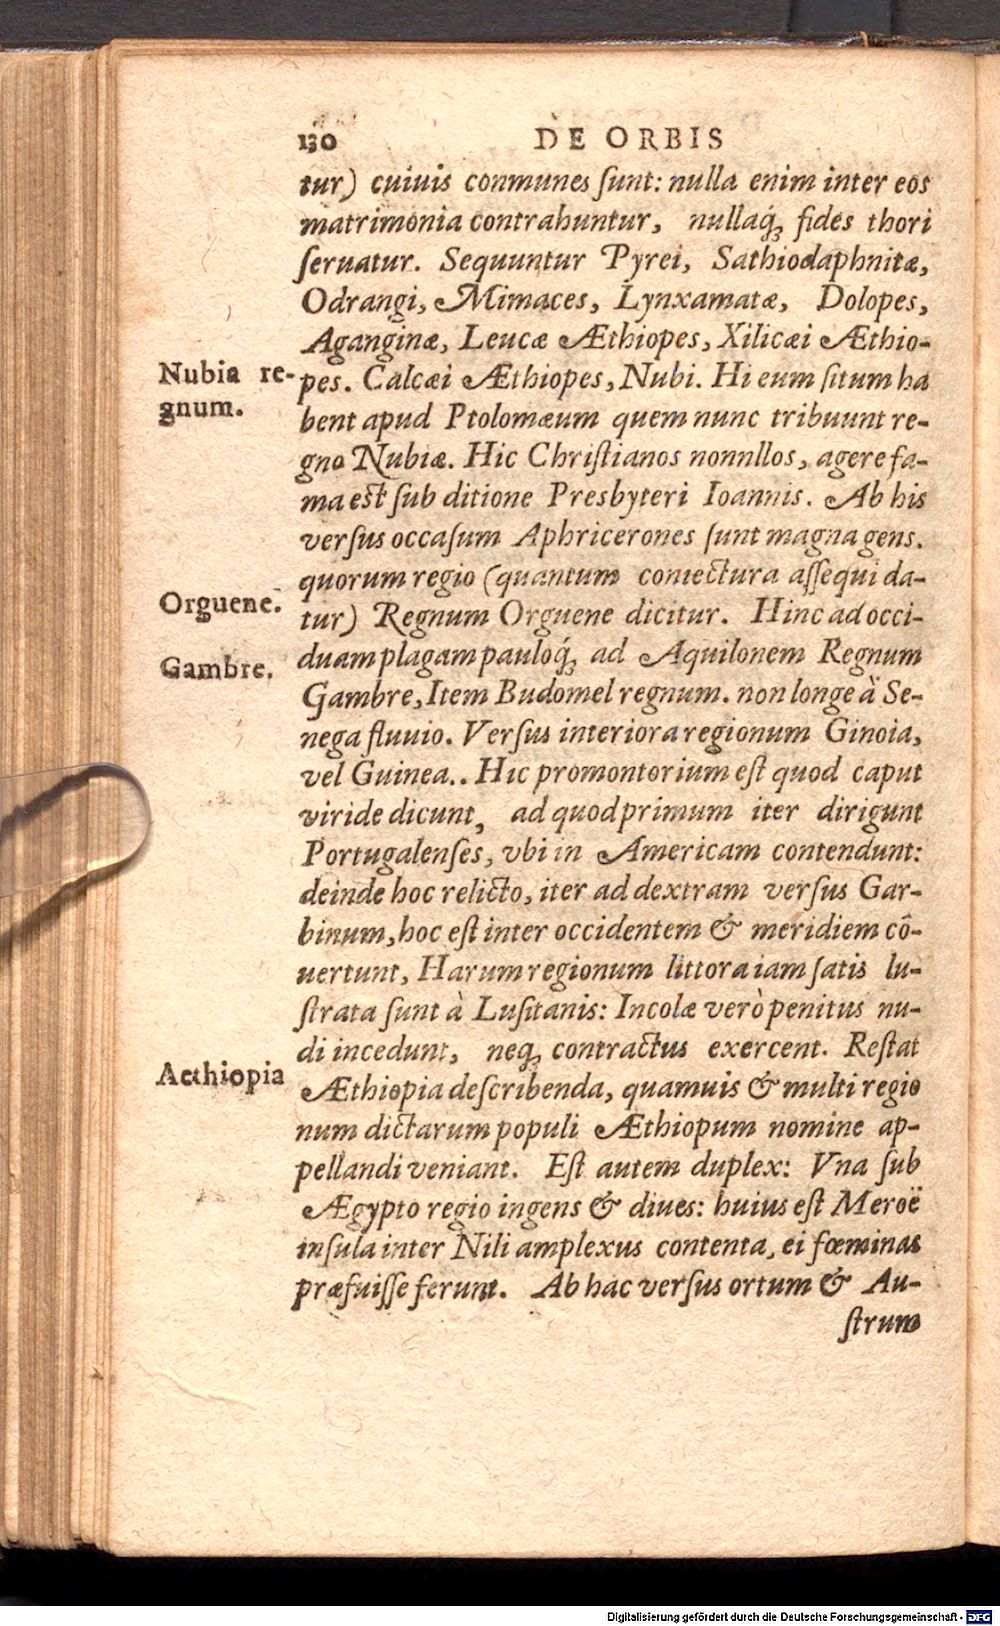 130 DE ORBIS
tur) cuiuis conmunes ſunt: nulla enim inter eos
matrimonia contrahuntur, nullaq́ꝫ fides thori
ſeruatur. Sequuntur Pyrei, Sathiodaphnitæ,
Odrangi, Mimaces, Lynxamatæ, Dolopes,
Aganginæ, Leucæ Æthiopes, Xilicæi Æthio-
Nubia re-
pes. Calcæi Æthiopes, Nubi. Hi eum ſitum ha
gnum.
bent apud Ptolomæum quem nunc tribuunt re-
gno Nubiæ. Hic Chriſtianos nonnllos, agere fa-
ma eſt ſub ditione Presbyteri Ioannis. Ab his
verſus occaſum Aphricerones ſunt magna gens.
quorum regio (quantum coniectura aſſequi da-
Orguene.
tur) Regnum Orguene dicitur. Hinc ad occi-
duam plagam pauloq́ꝫ ad Aquilonem Regnum
Gambre.
Gambre, Item Budomel regnum. non longe à Se-
nega fluuio. Verſus interiora regionum Ginoia,
vel Guinea.. Hic promontorium eſt quod caput
viride dicunt, ad quod primum iter dirigunt
Portugalenſes, vbi in Americam contendunt:
deinde hoc relicto, iter ad dextram verſus Gar-
binum, hoc eſt inter occidentem & meridiem cō-
uertunt, Harum regionum littora iam ſatis lu-
ſtrata ſunt à Luſitanis: Incolæ verò penitus nu-
di incedunt, neqꝫ contractus exercent. Reſtat
Aethiopia
Æthiopia deſcribenda, quamuis & multi regio
num dictarum populi Æthiopum nomine ap-
pellandi veniant. Eſt autem duplex: Vna ſub
Ægypto regio ingens & diues: huius eſt Meroë
inſula inter Nili amplexus contenta, ei fœminas
præfuiſſe ferunt. Ab hac verſus ortum & Au-
ſtrum
Digitalisierung gefördert durch die Deutsche Forschungsgemeinschaft - DFG